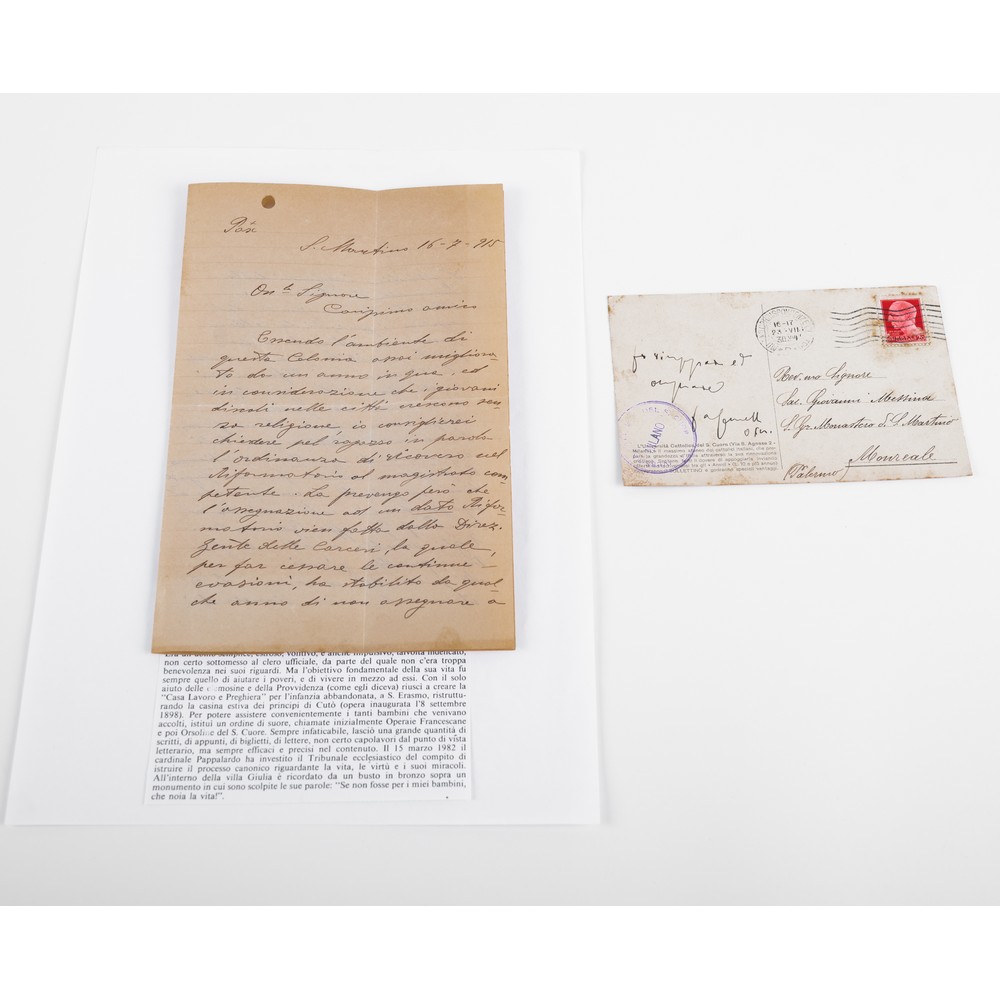 Pax
S. Martino 16-7-915
On.le Signore
Carissimo amico
Essendo l'ambiente di
questa Colonia assai migliora-
to da un anno in qua, ed
in considerazione che i giovani
discoli nelle città crescono sen-
za religione, io consiglierei
chiedere pel ragazzo in parola
l'ordinanza di ricovero nel
Riformatorio al magistrato com
petente. La prevengo però che
l'assegnazione ad un dato Rifor-
matorio vien fatta dalla Direz.
Gen.le delle Carceri, la quale,
per far cessare le continue
evasioni, ha stabilito da qual
che anno di non assegnare a
Era un uomo semplice, estroso, volitivo, e anche impulsivo, talvolta
non certo sottomesso al clero ufficiale, da parte del quale non c'era troppa
benevolenza nei suoi riguardi. Ma l'obiettivo fondamentale della sua vita fu
sempre quello di aiutare i poveri, e di vivere in mezzo ad essi. Con il solo
aiuto delle elemosine e della Provvidenza (come egli diceva) riuscì a creare la
"Casa Lavoro e Preghiera" per l'infanzia abbandonata, a S. Erasmo, ristruttu-
rando la casina estiva dei principi di Cutò (opera inaugurata l'8 settembre
1898). Per potere assistere convenientemente i tanti bambini che venivano
accolti, istituì un ordine di suore, chiamate inizialmente Operaie Francescane
e poi Orsoline del S. Cuore. Sempre infaticabile, lasciò una grande quantità di
scritti, di appunti, di biglietti, di lettere, non certo capolavori dal punto di vista
letterario, ma sempre efficaci e precisi nel contenuto. Il 15 marzo 1982 il
cardinale Pappalardo ha investito il Tribunale ecclesiastico del compito di
istruire il processo canonico riguardante la vita, le virtù e i suoi miracoli.
All'interno della villa Giulia è ricordato da un busto in bronzo sopra un
monumento in cui sono scolpite le sue parole: "Se non fosse per i miei bambini,
che noia la vita!".
16-17
23·VII
MILANO
L'Università Cattolica del S. Cuore (Via S. Agnese 2 -
Rev.mo Signore
Sac. Giovanni Messina
S. Gr. Monastero di S. Martino
Monreale
(Palermo)